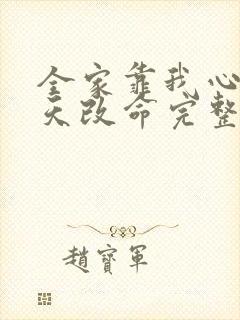 全家靠我心
天改命完整
趙寶軍